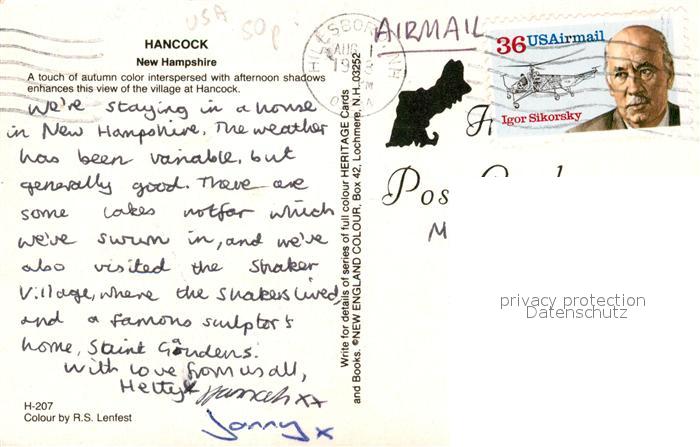 USA 50p
HANCOCK
New Hampshire
A touch of autumn color interspersed with afternoon shadows
enhances this view of the village at Hancock.
We're staying in a home
in New Hampshire. The weather
has been variable, but
generally good. There are
some lakes not far which
we've swum in, and we've
also visited the Shaker
Village, where the Shakers lived,
and a famous sculptor's
home, Staint Gaudens.
With love from us all,
Hetty x Hannah xx
Jonny x
H-207
Colour by R.S. Lenfest
Write for details of series of full colour HERITAGE Cards
and Books. ©NEW ENGLAND COLOUR, Box 42, Lochmere, N.H. 03252
AUG 1
NH
AIRMAIL
36 USAirmail
Igor Sikorsky
Pos
M
privacy protection
Datenschutz